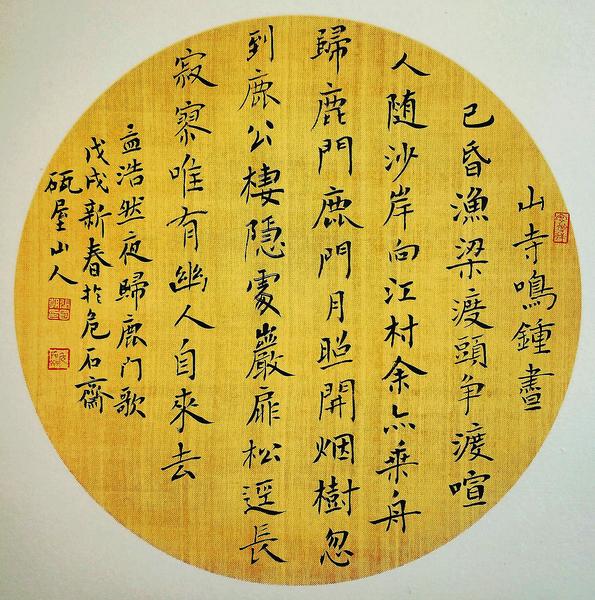 山寺鳴鍾晝
已昏漁梁渡頭争渡喧
人随沙岸向江村余亦乘舟
歸鹿門鹿門月照開烟樹忽
到鹿公棲隱處巖扉松逕長
寂寥唯有幽人自來去
孟浩然夜歸鹿门歌
戊戌新春於危石齋
屋山人